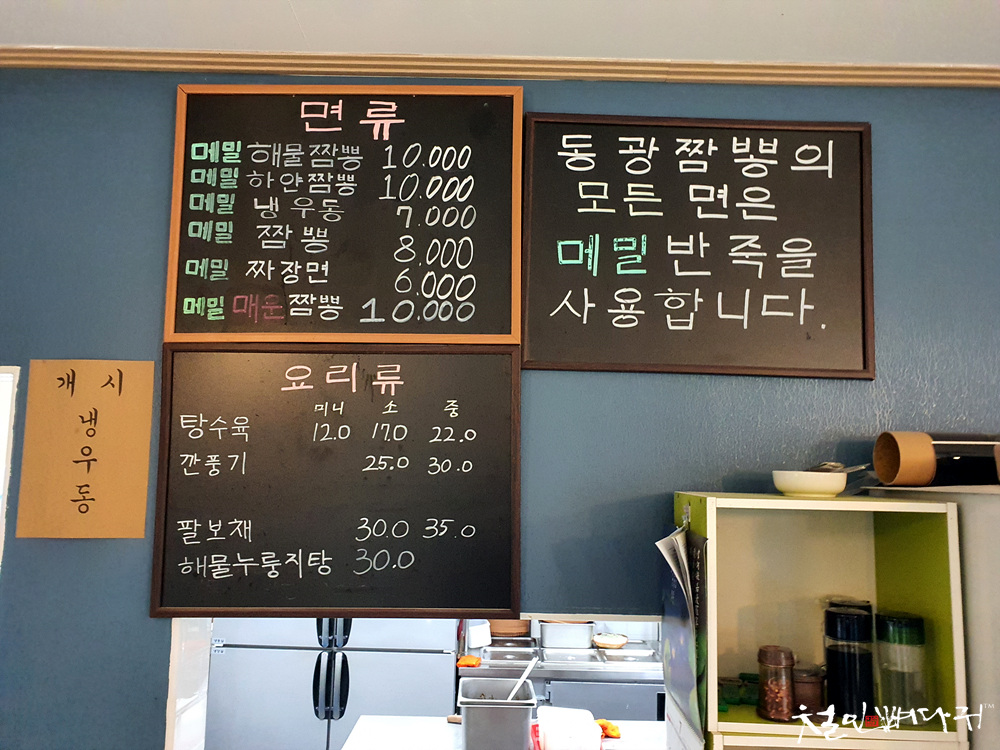 면류
메밀 해물짬뽕 10.000
메밀 하얀짬뽕 10.000
메밀 냉우동 7.000
메밀 짬뽕 8.000
메밀 짜장면 6.000
메밀 매운짬뽕 10.000
동광짬뽕의
모든 면은
메밀반죽을
사용합니다.
요리류
미니 소 중
탕수육 12.0 17.0 22.0
깐풍기 25.0 30.0
팔보채 30.0 35.0
해물누룽지탕 30.0
개시
냉
우
동
철민빠다귀™